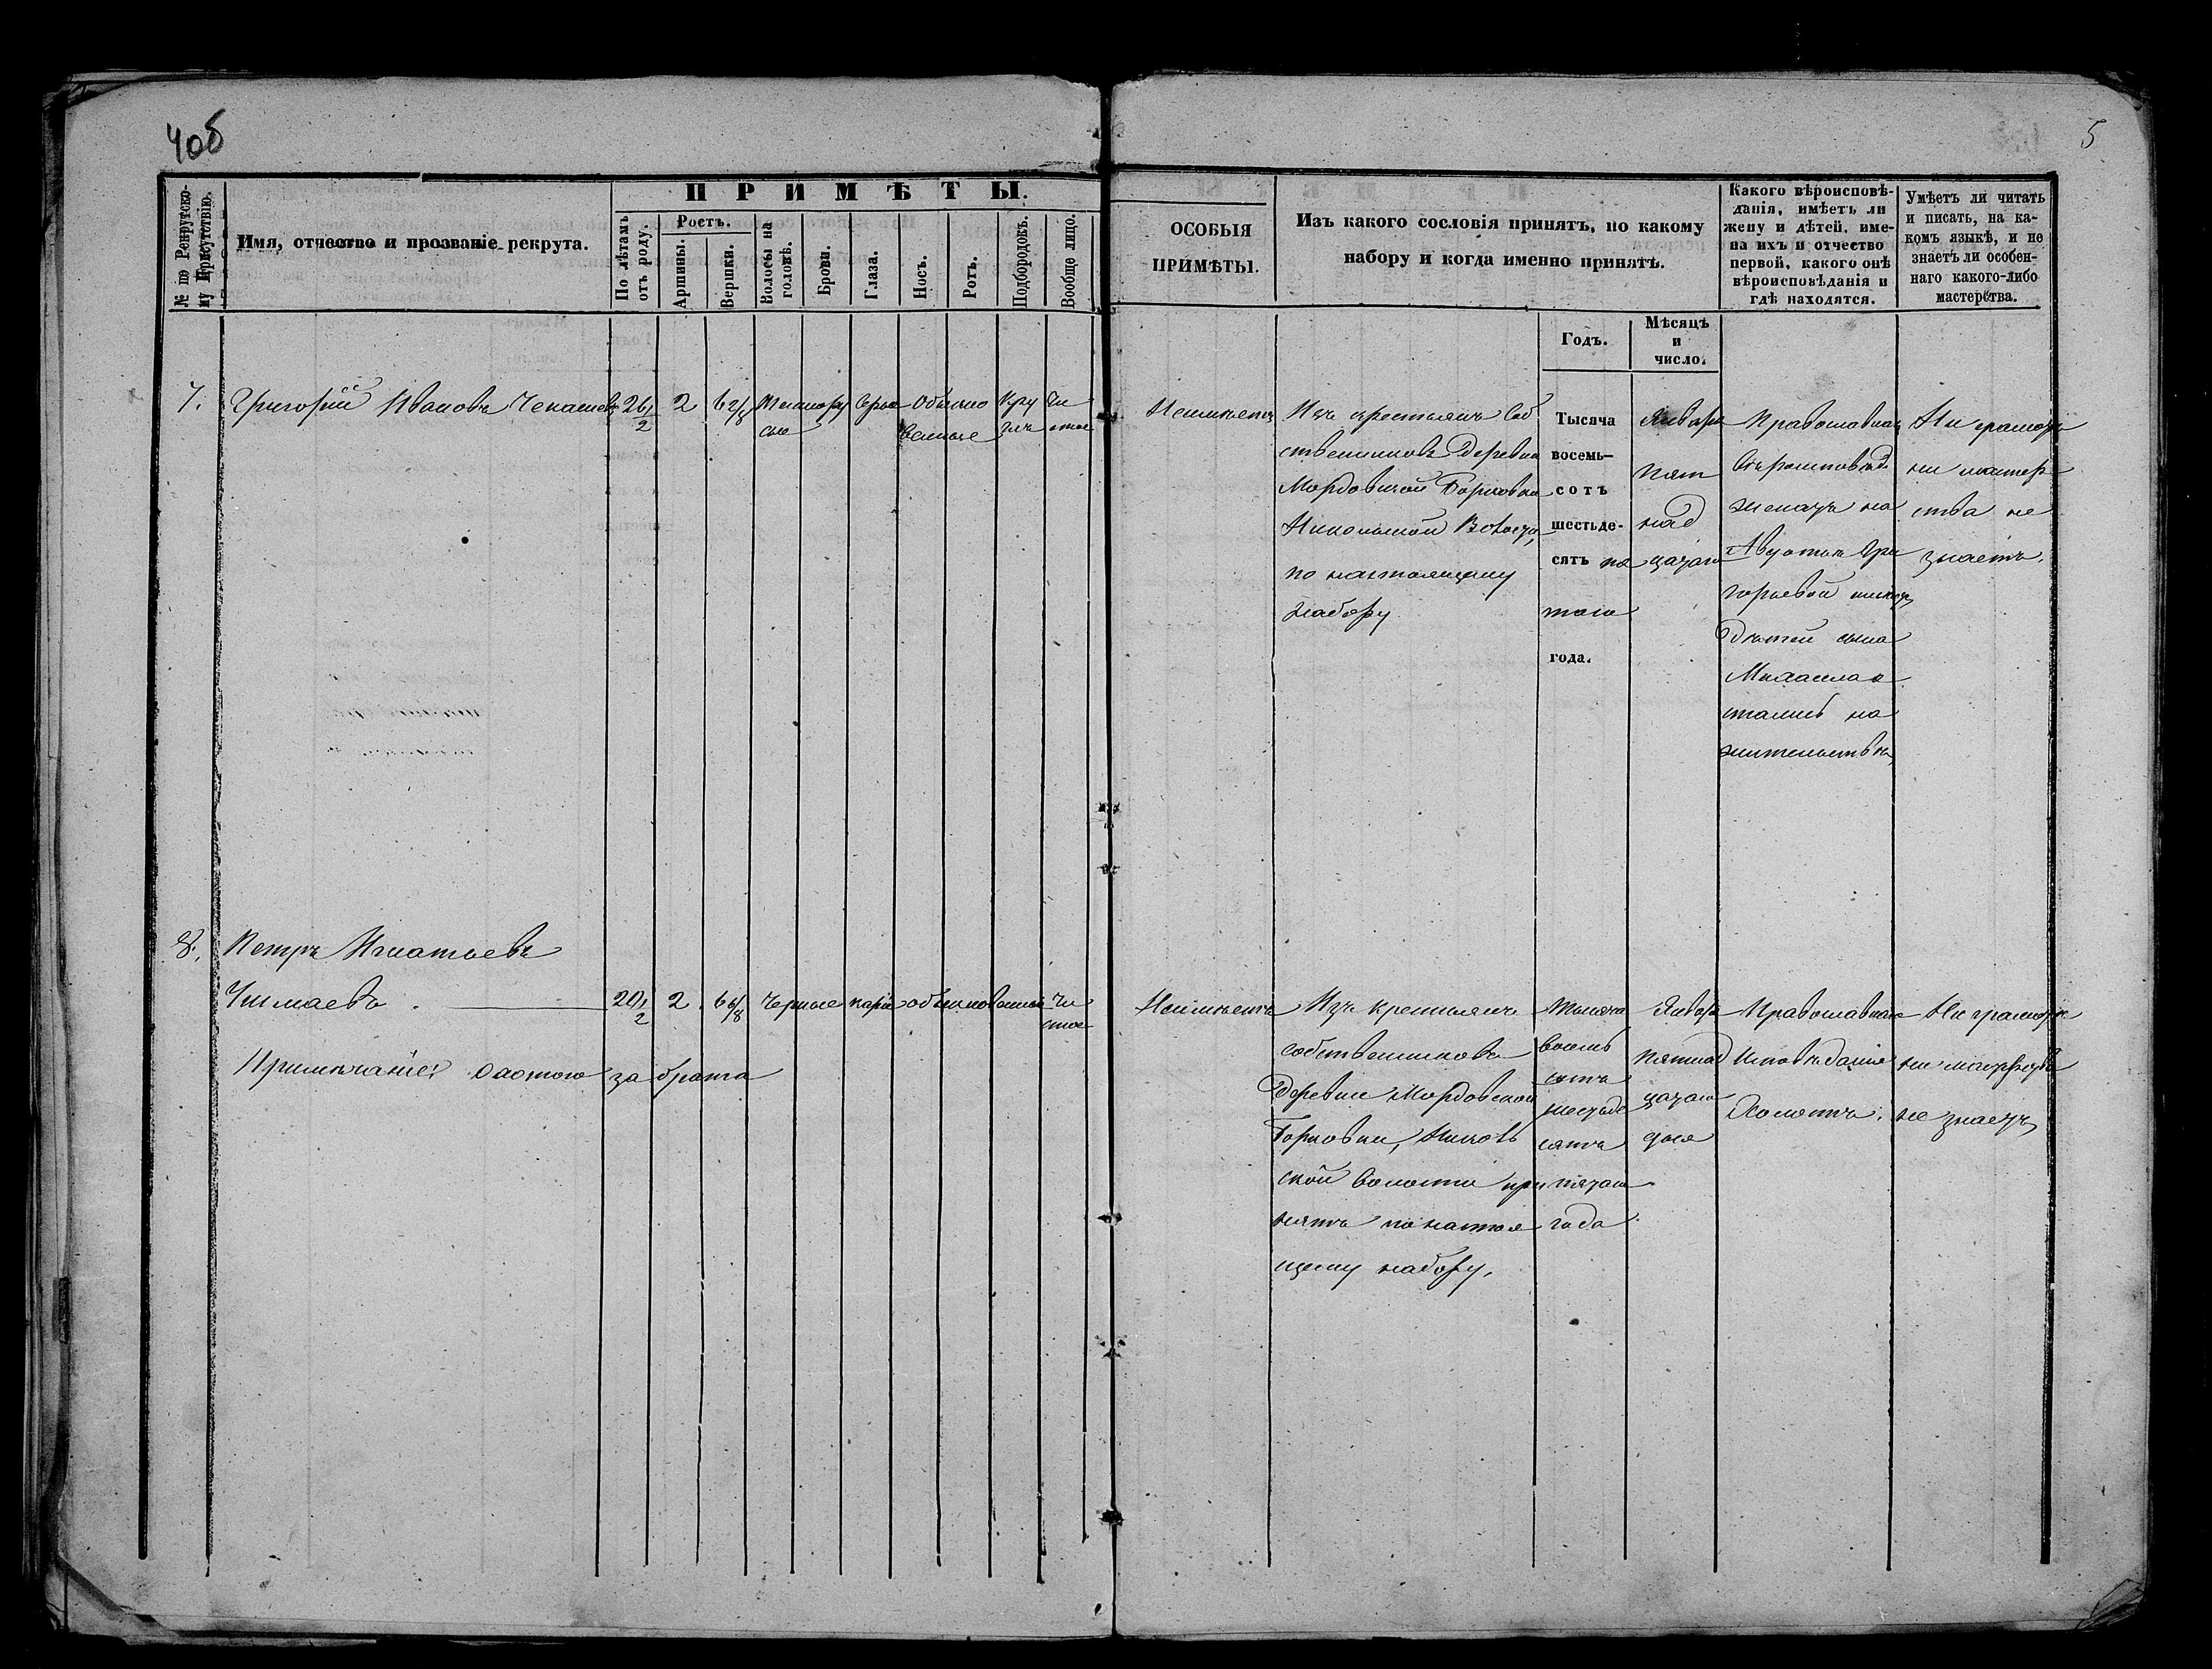 4об
5
№ по Рекрутско-
му Присутствію.
Имя, отчество и прозваніе рекрута.
ПРИМѢТЫ.
По лѣтамъ
отъ роду.
Ростъ.
Аршины.
Вершки.
Волосы на
головѣ.
Брови.
Глаза.
Носъ.
Ротъ.
Подбородокъ.
Вообще лицо.
ОСОБЫЯ
ПРИМѢТЫ.
Изъ какого сословія принятъ, по какому
набору и когда именно принятъ.
Годъ.
Мѣсяцъ
и
число.
Какого вѣроисповѣ-
данія, имѣетъ ли
жену и дѣтей, име-
на ихъ и отчество
первой, какого онѣ
вѣроисповѣданія и
гдѣ находятся.
Умѣетъ ли читать
и писать, на ка-
комъ языкѣ, и не
знаетъ ли особен-
наго какого-либо
мастерства.
7.
Григорій Ивановъ
26 1/2
2
6
Темнору
сые
серые
Обыкно
венные
Кру
глъ
Чи
стое
Неимѣетъ
Изъ крестьянъ Соб
ственниковъ Деревни
Мордовской Борковки
Никольской Волости,
по настоящему
набору
Тысяча
восемь-
сотъ
шестьде-
сятъ пя
таго
года.
Января
пят
над
цатаго
Православнаго
вѣроисповѣд
женатъ на
Авдотьи Гри
горьевой имѣетъ
Дѣтей сына
Михаила о
стались на
жительствѣ
Ни грамоты
ни мастер
ства не
знаетъ.
8.
Петръ Игнатьевъ
20 1/2
2
6 6/8
Черные
каріе
обыкновенные
Чи
стое
Примѣчаніе: Охотою за брата
Неимѣетъ
Изъ крестьянъ
собственниковъ
Деревни Мордовской
Борковки, Николь
ской волости при
нятъ по настоя
щему набору.
Тысяча
восемь
сотъ
шестьде
сятъ
пятаго
года
Января
пятнад
цатаго
дня
Православнаго
Исповѣданія
Холостъ.
Ни грамоты
ни мастерства
не знаетъ